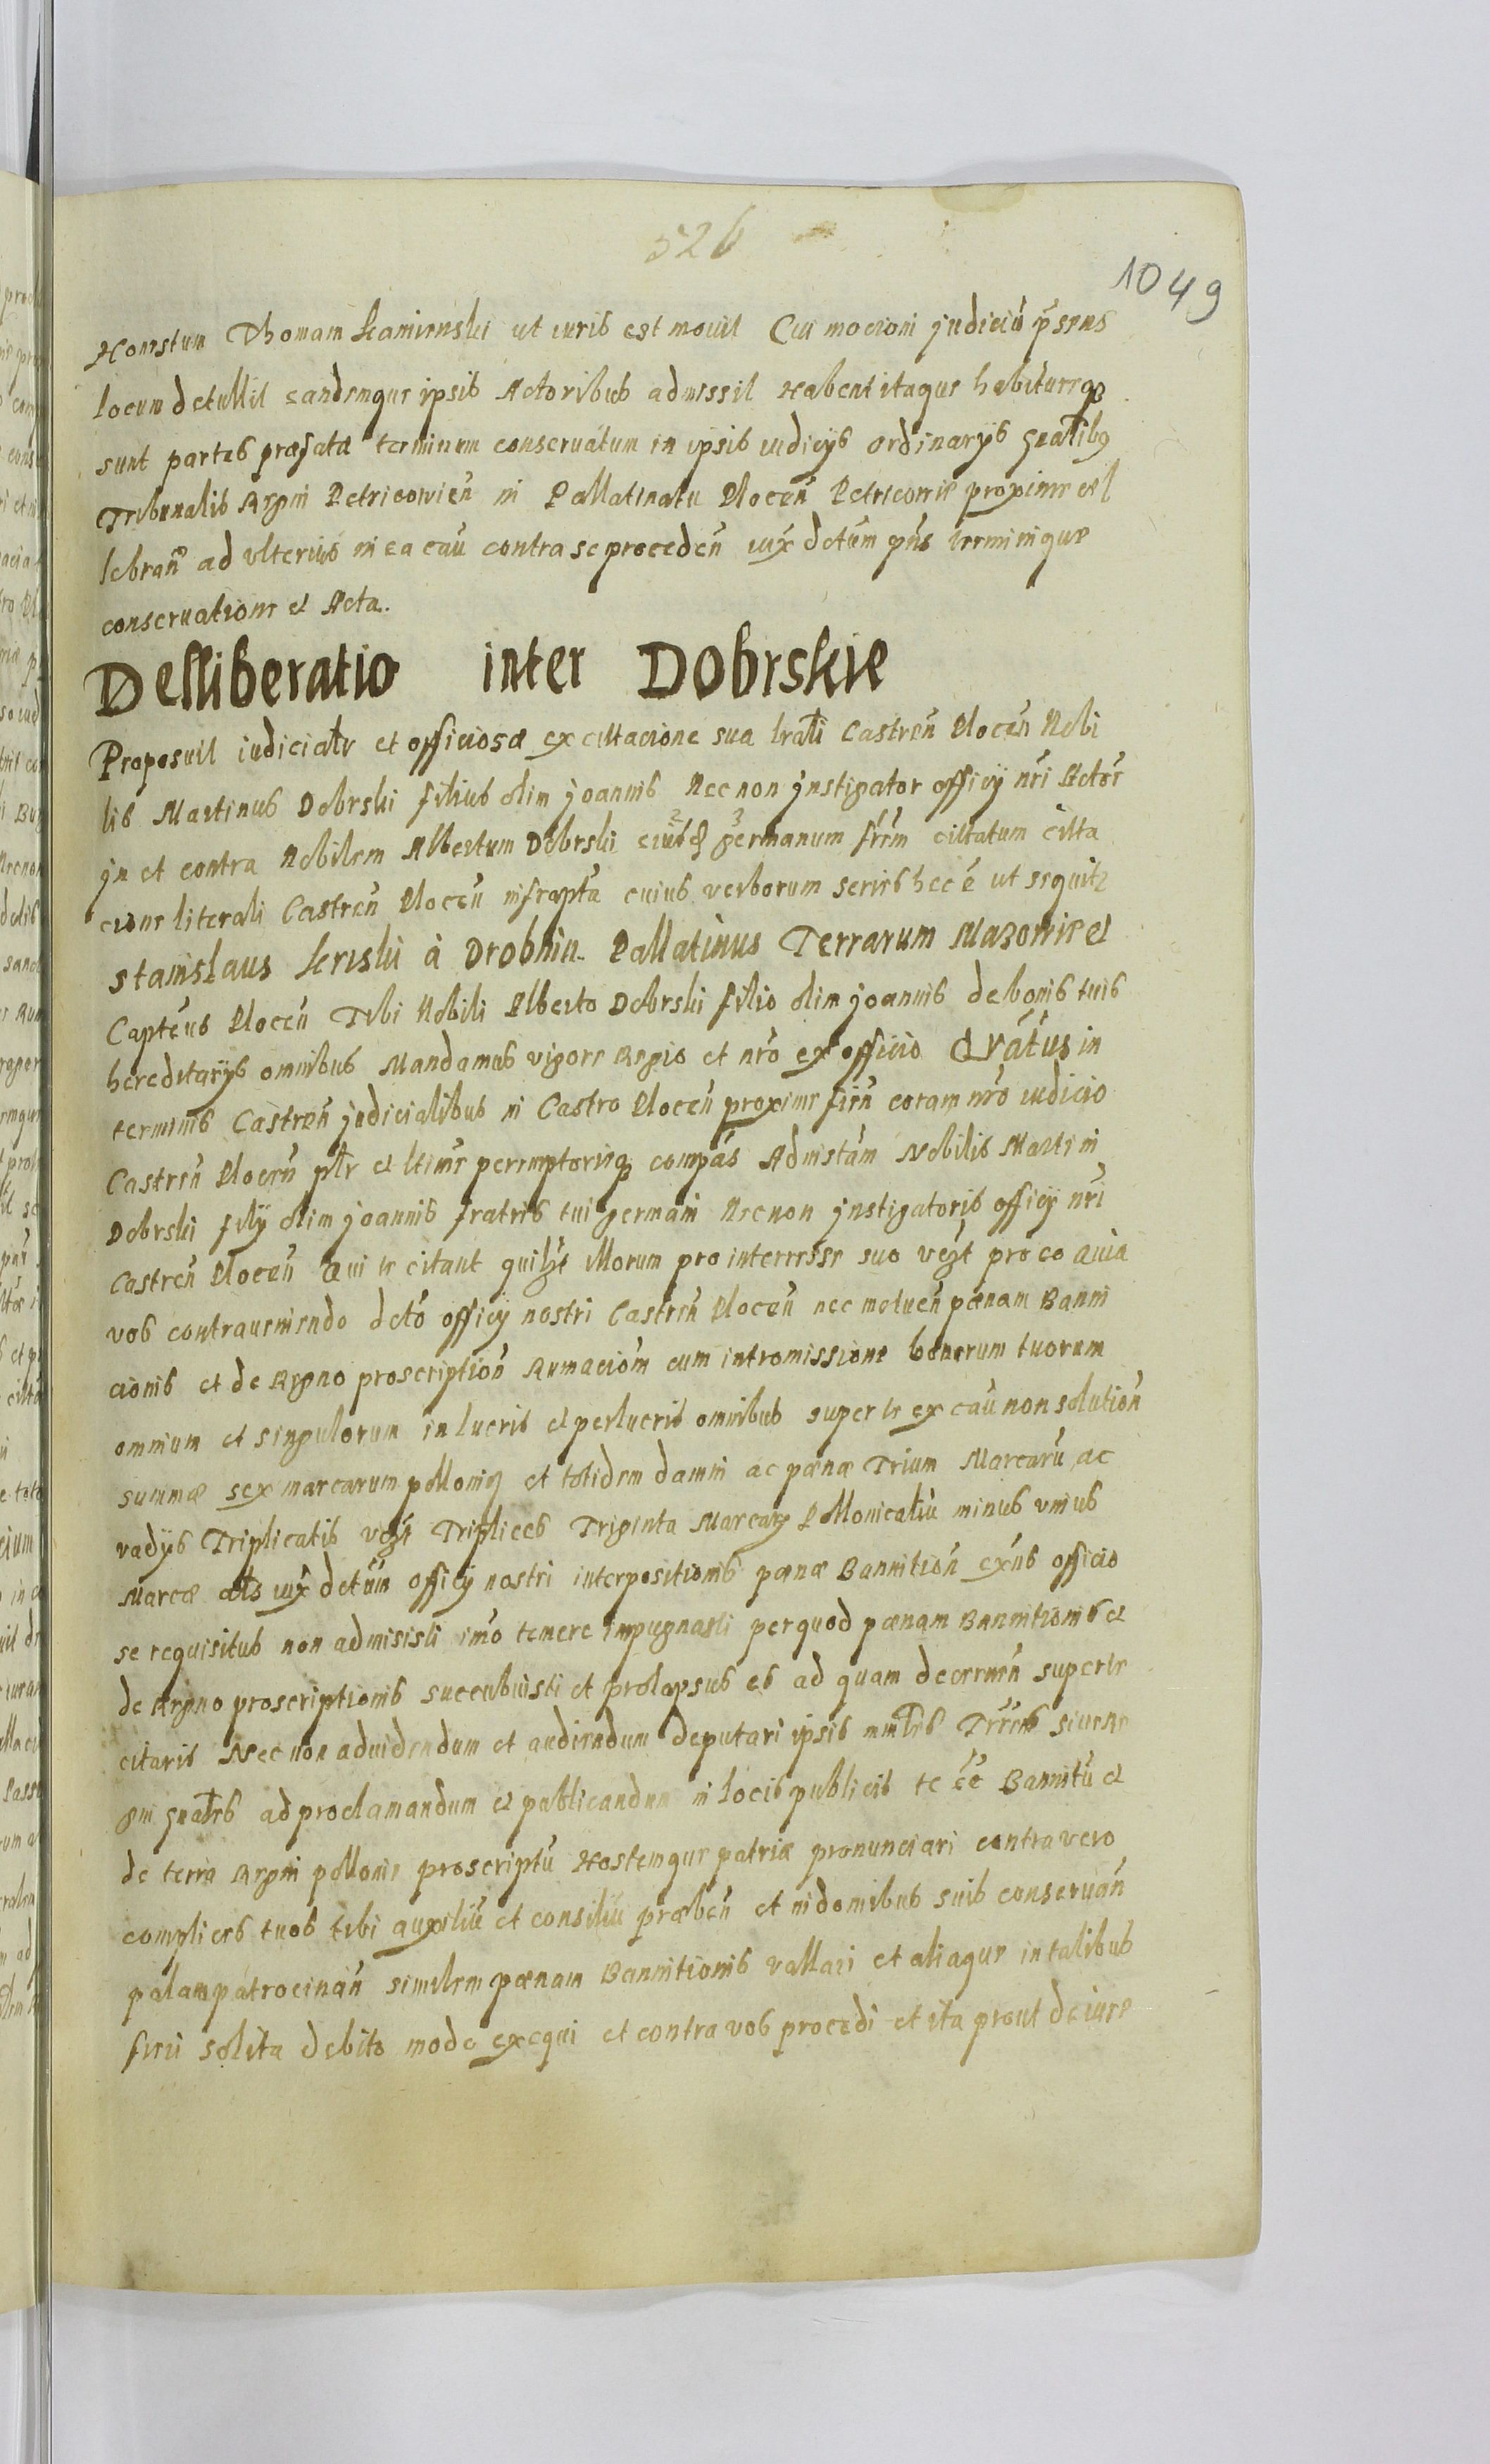 526
1049
Honestum Thomam Kamienski ut iuris est mouit Cui mocioni judiciū p̄sens
locum detullit eandemque ipsis Actoribus admissit Habent itaque habituręq
sunt partes præfatæ terminum conseruatum in ipsis iudicÿs ordinarÿs gn̄alibq
Tribunalis Regni Petricowień in Pallatinatu Ploceń Petricowie proxime cel
lebrań ad vlterius in ea caū contra se procedeń iux̄ detūm pn̄s terminique
conseruatione et Acta.
Delliberatio inter Dobrskie
Proposuit iudicialr et officiosæ ex cittacione sua lrāli Castreń Ploceń Nobi
lis Martinus Dobrski filius olim joannis Nec non jnstigator officÿ nrī Actor
jn et contra Nobilem Albertum Dobrski eiusd germanum frēm cittatum citta
cione literali Castreń Ploceń infrapta cuius verborum series hec ē ut sequitr
stanislaus kriski à Drobnin Pallatinus Terrarum Mazowie et
Captēus Ploceń Tibi Nobili Alberto Dobrski filio olim joannis de bonis tuis
hereditarÿs omnibus Mandamus vigore Regio et nrō ex officio Qvātus in
terminis Castreń judicialibus in Castro Ploceń proxime fień coram nrō iudicio
Castreń Ploceń plr et ltime peremptorieq compas Ad instām Nobilis Martini
Dobrski filÿ olim joannis fratris tui germani Nec non jnstigatoris officÿ nrī
Castreń Ploceń Qui te citant quilzt illorum pro interresse suo vezt pro eo quia
vos contraueniendo detō officÿ nostri Castreń Ploceń nec metueń pœnam Banni
cionis et de Regno proscription Rumaciōm cum intromissione bonorum tuorum
omnium et singulorum in lucris et perlucris omnibus super te ex caū non solution
summæ sex marcarum pollonię et totidem damni ac pœnæ Trium Marcarū ac
vadÿs Triplicatis vezt Triplices Triginta Marcarz Pollonicaliū minus vnius
Marcæ als iux̄ detūm officÿ nostri interpositionis pœnæ Bannition exn̄s officio
se requisitus non admisisti imō temere impugnasti per quod pœnam Bannitionis et
de Regno proscriptionis succubuisti et prolapsus es ad quam decerneń super te
citaris Nec non ad uidendum et audiendum deputari ipsis minlrēs Trrēs siue Re
gni gn̄ales ad proclamandum et publicandum in locis publicis te ēē Bannitū et
de terra Regni pollonie proscriptū Hostemque patriæ pronunciari contra vero
complices tuos tibi auxiliū et consiliū præbeń et in domibus suis conseruań
palam patrocinań similem pœnam Bannitionis vallari et aliaque in talibus
fieri solita debito modo exequi et contra vos procedi et ita prout de iure